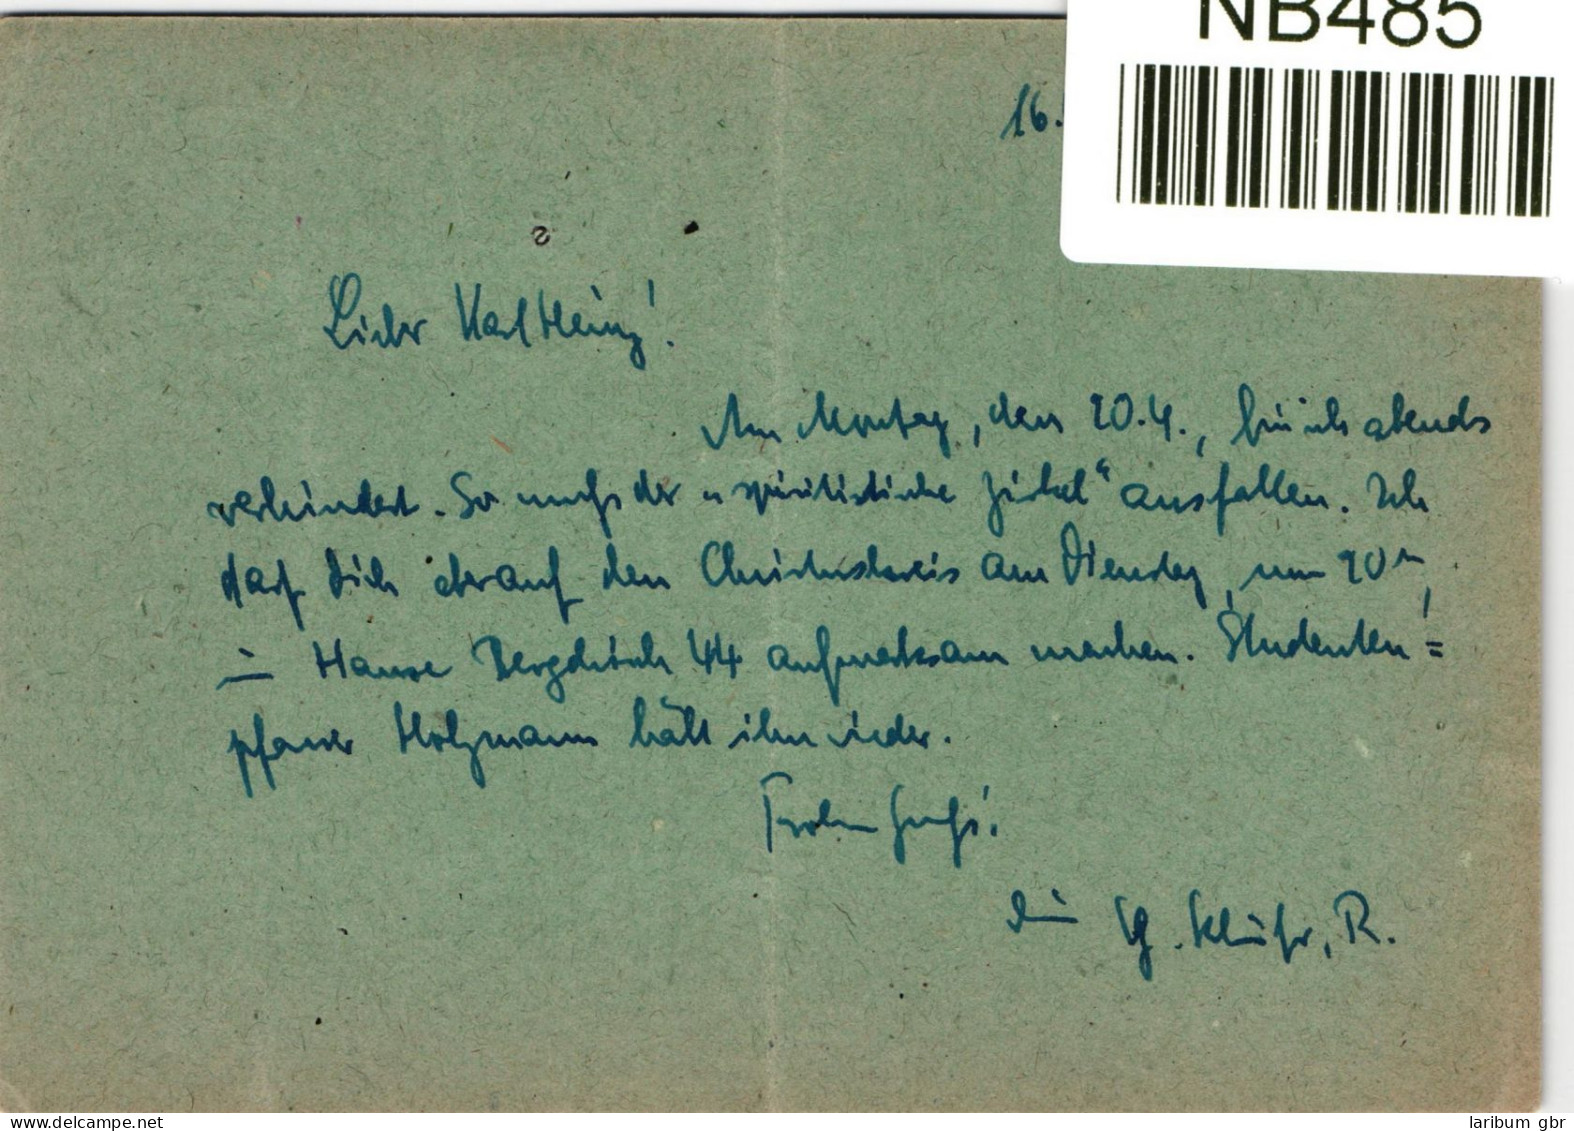 NB485
16.
Lieber Karl Heinz!
Am Montag, den 20.4., bin ich abends
verhindert. So muß der „spiritistische Zirkel“ ausfallen. Ich
darf Dich aber auf den Christuskreis am Dienstag, um 20ʰ,
im Hause 44 aufmerksam machen. Studenten=
pfarrer Holzmann hält ihn wieder.
Frohen Gruß!
Dein R.
www.delcampe.net
laribum gbr